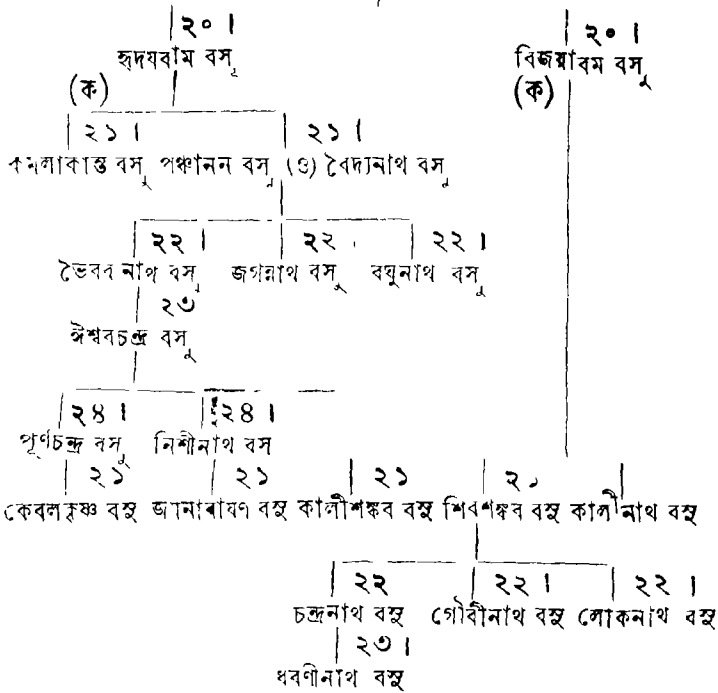 ২০। ২০।
হৃদযবাম বসু বিজয়াবম বসু
(ক) (ক)
২১। ২১।
কমলাকান্ত বসু পঞ্চানন বসু (ও) বৈদ্যনাথ বসু
২২। ২২ . ২২।
ভৈবব নাথ বসু জগন্নাথ বসু বঘুনাথ বসু
২৩
ঈশ্ববচন্দ্র বসু
২৪। ২৪।
পূর্ণচন্দ্র বসু নিশীনাথ বস
২১ ২১ ২১ ২১
কেবলকৃষ্ণ বসু জানাবাযণ বসু কালীশঙ্কব বসু শিবশঙ্কব বসু কালীনাথ বসু
২২ ২২। ২২।
চন্দ্রনাথ বসু গৌবীনাথ বসু লোকনাথ বসু
২৩।
ধবণীনাথ বসু